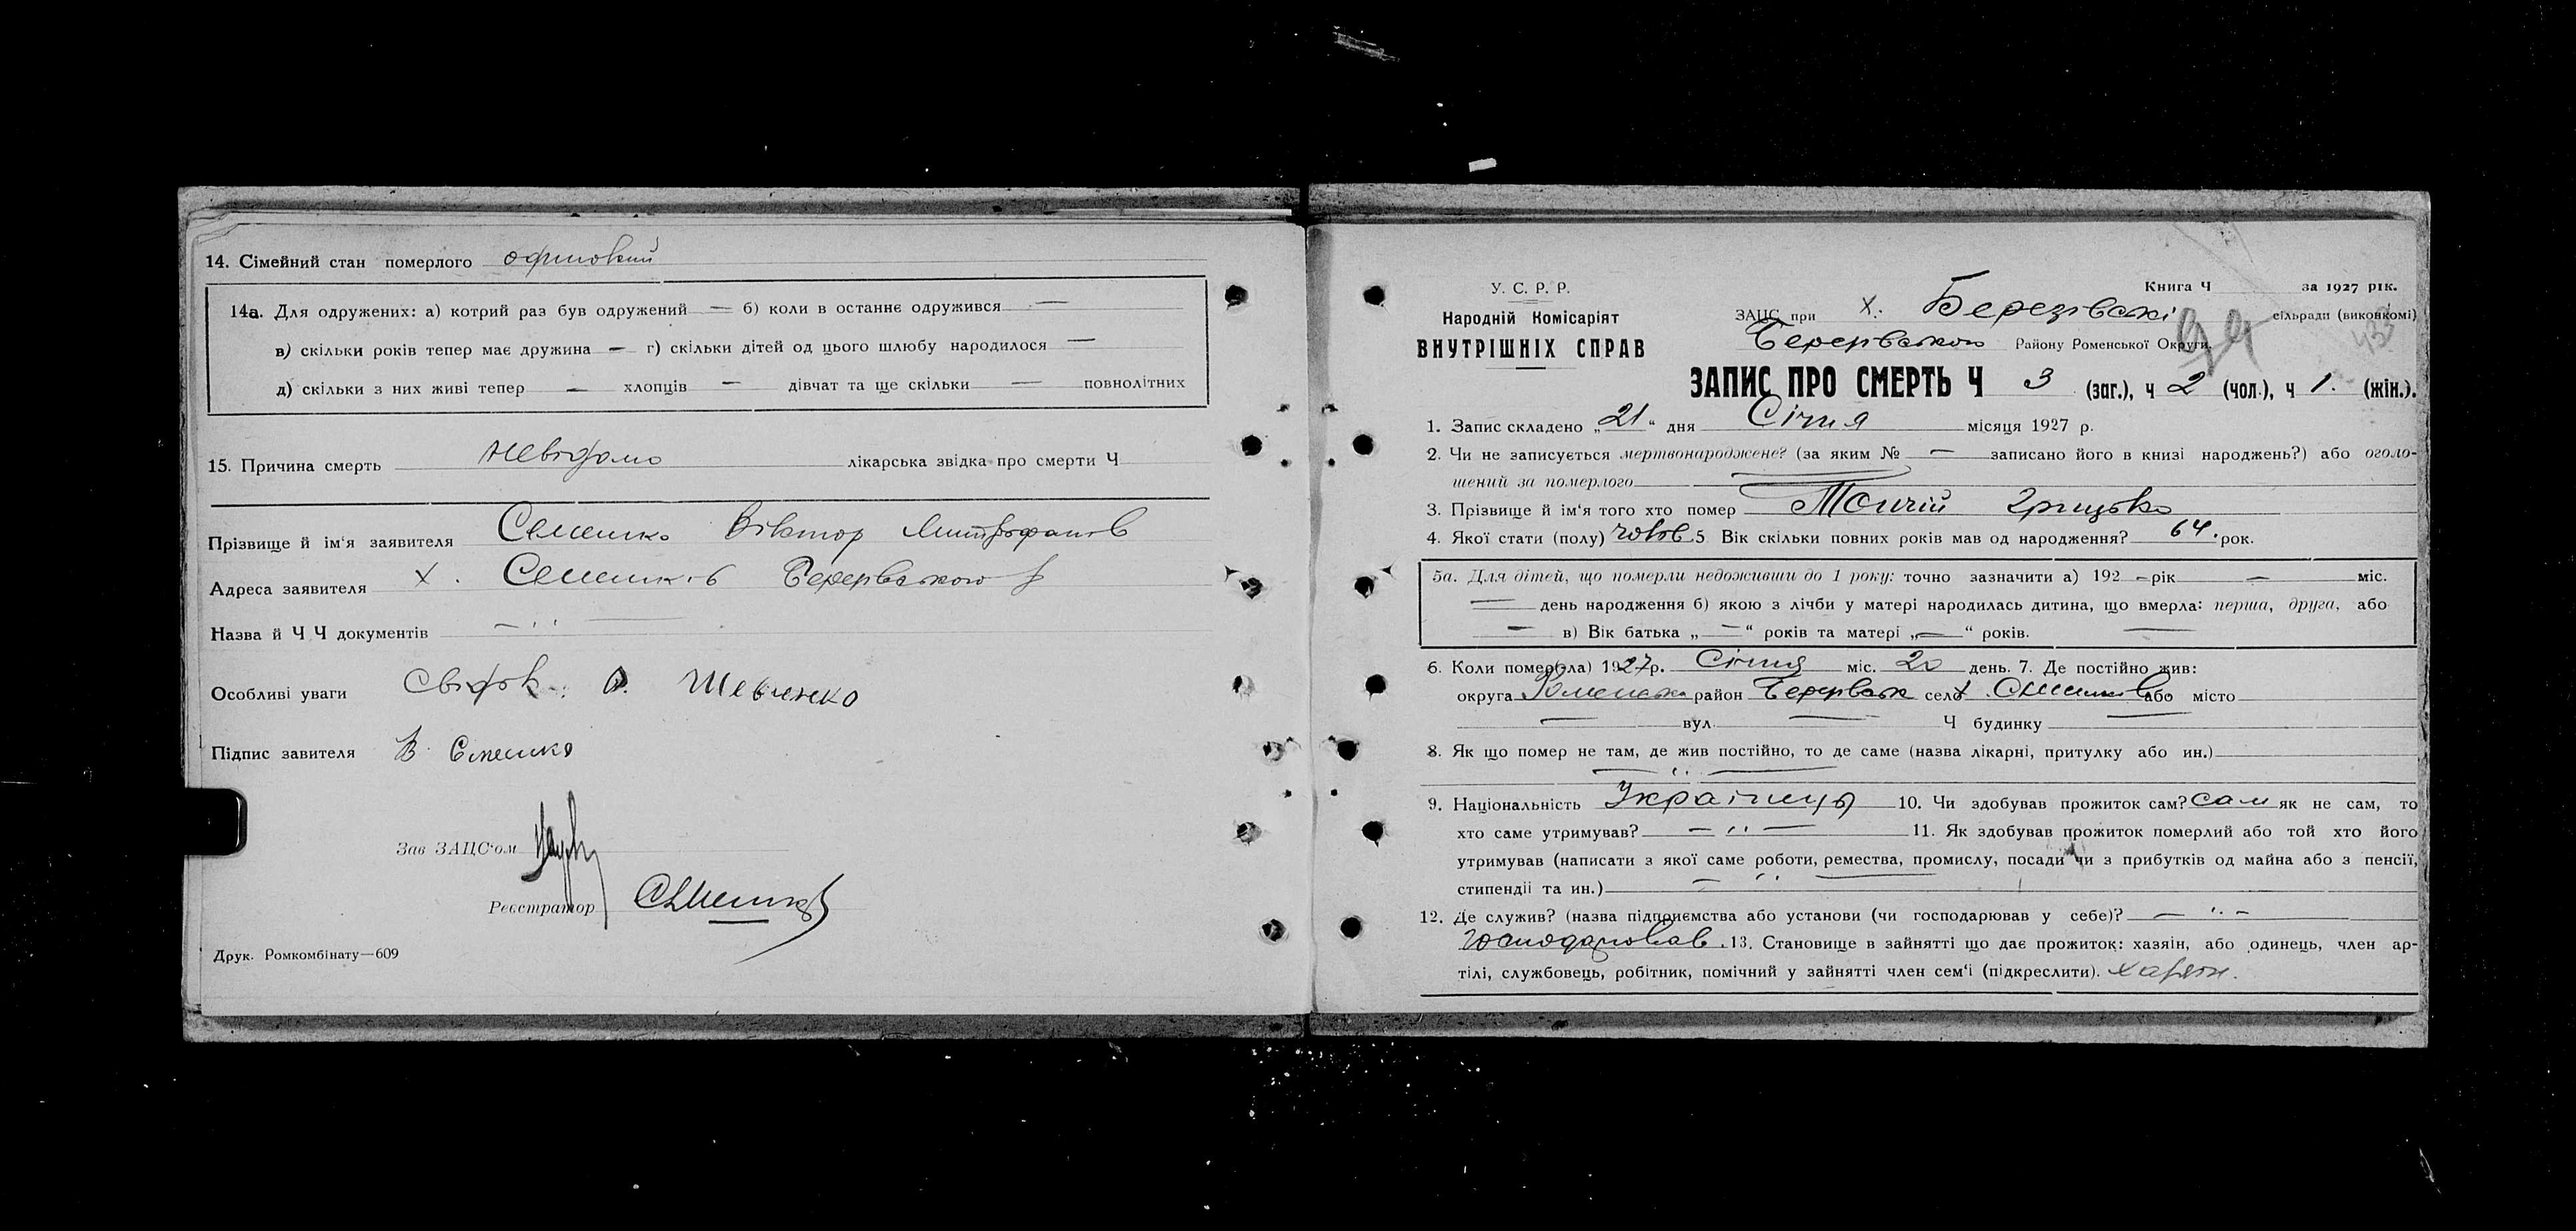 14. Сімейний стан померлого
14а. Для одружених: а) котрий раз був одружений — б) коли в останнє одружився —
в) скільки років тепер має дружина — г) скільки дітей од цього шлюбу народилося —
д) скільки з них живі тепер — хлопців — дівчат та ще скільки — повнолітних
15. Причина смерть невідомо лікарська звідка про смерти Ч
Прізвище й ім‘я заявителя Семенко Віктор Митрофанов
Адреса заявителя х. Семенків
Назва й Ч Ч документів — ‘‘ —
Особливі уваги Свідок: Шевченко
Підпис завителя В
Зав ЗАЦС‘ом
Реєстратор
Друк. Ромкомбінату—609
Книга Ч за 1927 рік.
У. С. Р. Р.
Народній Комісаріят
ВНУТРІШНІХ СПРАВ
ЗАЦС при х. Березівські сільради (виконкомі)
Району Роменської Округи.
ЗАПИС ПРО СМЕРТЬ Ч 3 (заг.), ч 2 (чол.), ч 1. (жін.).
1. Запис складено „21“ дня Січня місяця 1927 р.
2. Чи не записується мертвонароджене? (за яким № — записано його в книзі народжень?) або оголо-
шений за померлого
3. Прізвище й ім‘я того хто помер Грицько
4. Якої стати (полу) чолов. 5 Вік скільки повних років мав од народження? 64. рок.
5а. Для дітей, що померли недоживши до 1 року: точно зазначити а) 192 — рік — міс.
— день народження б) якою з лічби у матері народилась дитина, що вмерла: перша, друга, або
— в) Вік батька „—“ років та матері „—“ років.
6. Коли помер(ла) 1927 р. Січня міс. 20 день. 7. Де постійно жив:
округа Роменська район село х. або місто
— вул. — Ч будинку —
8. Як що помер не там, де жив постійно, то де саме (назва лікарні, притулку або ин.)
— ‘‘ —
9. Національність Українець 10. Чи здобував прожиток сам? сам як не сам, то
хто саме утримував? — ‘‘ — 11. Як здобував прожиток померлий або той хто його
утримував (написати з якої саме роботи, ремества, промислу, посади чи з прибутків од майна або з пенсії,
стипендії та ин.) — ‘‘ —
12. Де служив? (назва підприємства або установи (чи господарював у себе)? — ‘‘ —
господарював. 13. Становище в зайнятті що дає прожиток: хазяін, або одинець, член ар-
тілі, службовець, робітник, помічний у зайнятті член сем‘і (підкреслити). хазяін.